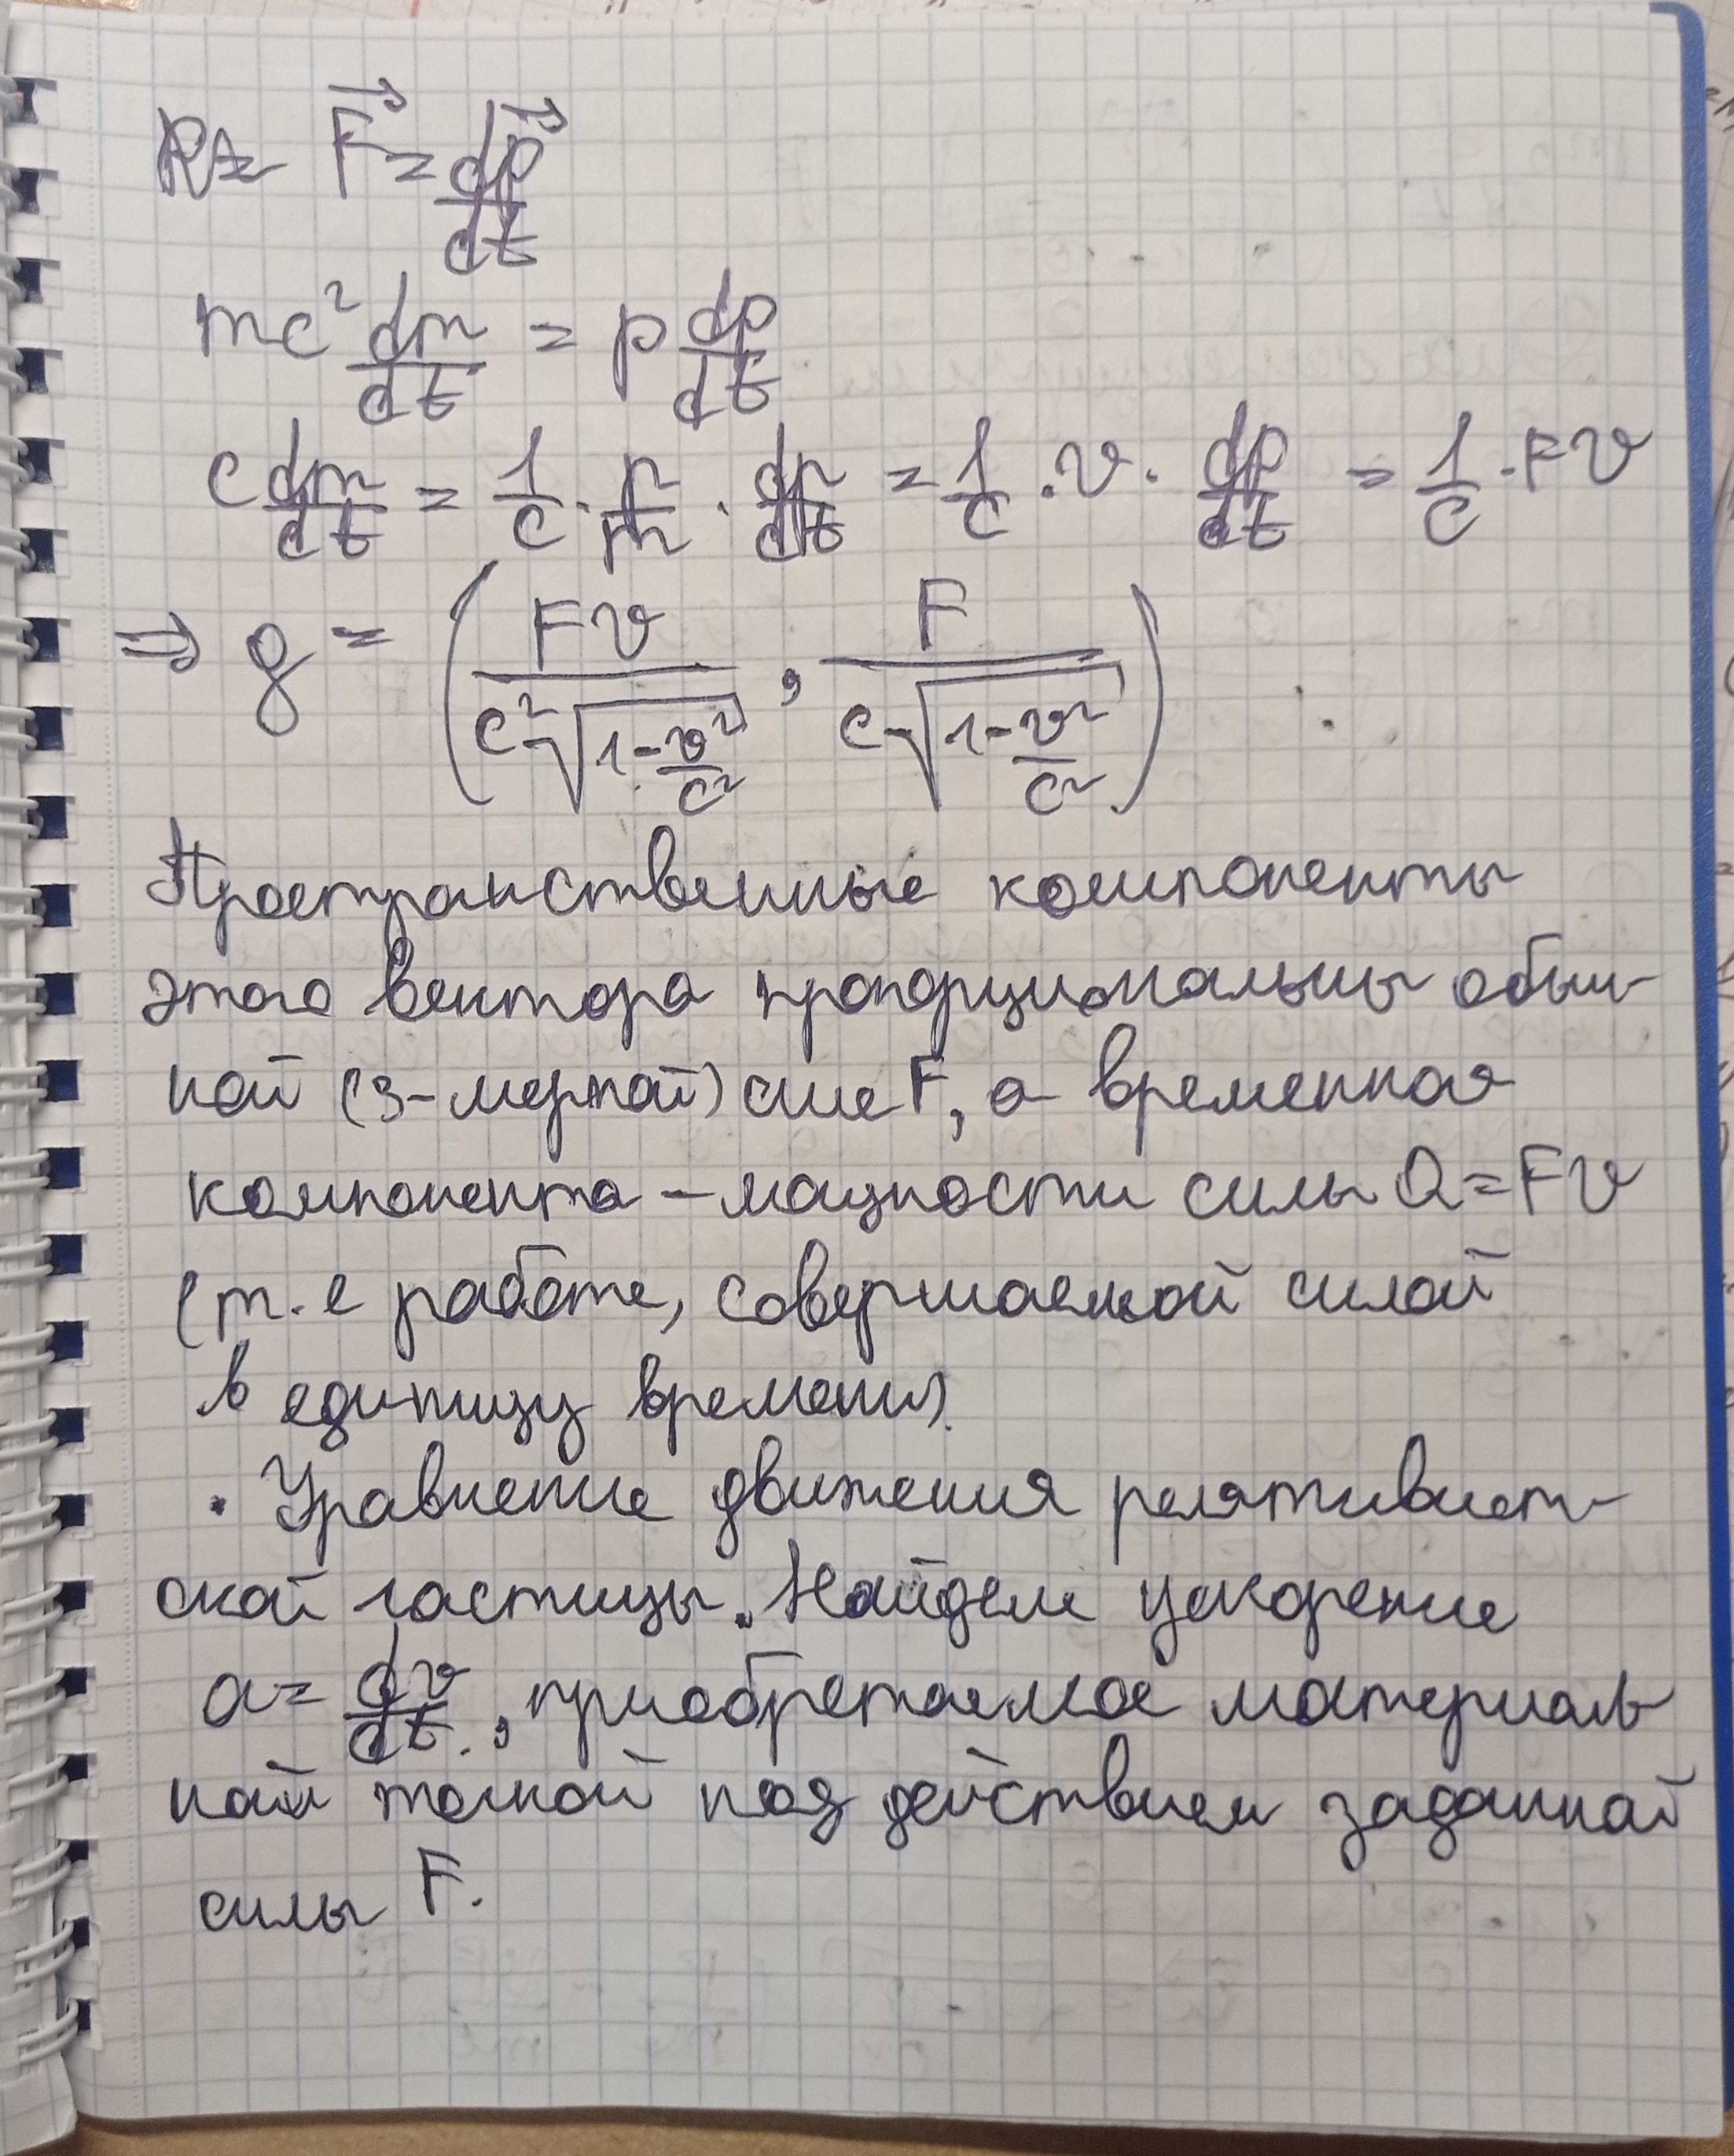 F⃗ = dp⃗/dt
mc² dm/dt = p dp/dt
c dm/dt = 1/c · p/m · dp/dt = 1/c · v · dp/dt = 1/c · Fv
⇒ g = (Fv/(c²√(1-v²/c²)), F/(c√(1-v²/c²)))
Пространственные компоненты
этого вектора пропорциональны обыч-
ной (3-мерной) силе F, а временная
компонента – мощности силы Q=Fv
(т.е работе, совершаемой силой
в единицу времени).
· Уравнение движения релятивист-
ской частицы. Найдем ускорение
a= dv/dt, приобретаемое материаль
ной точкой под действием заданной
силы F.